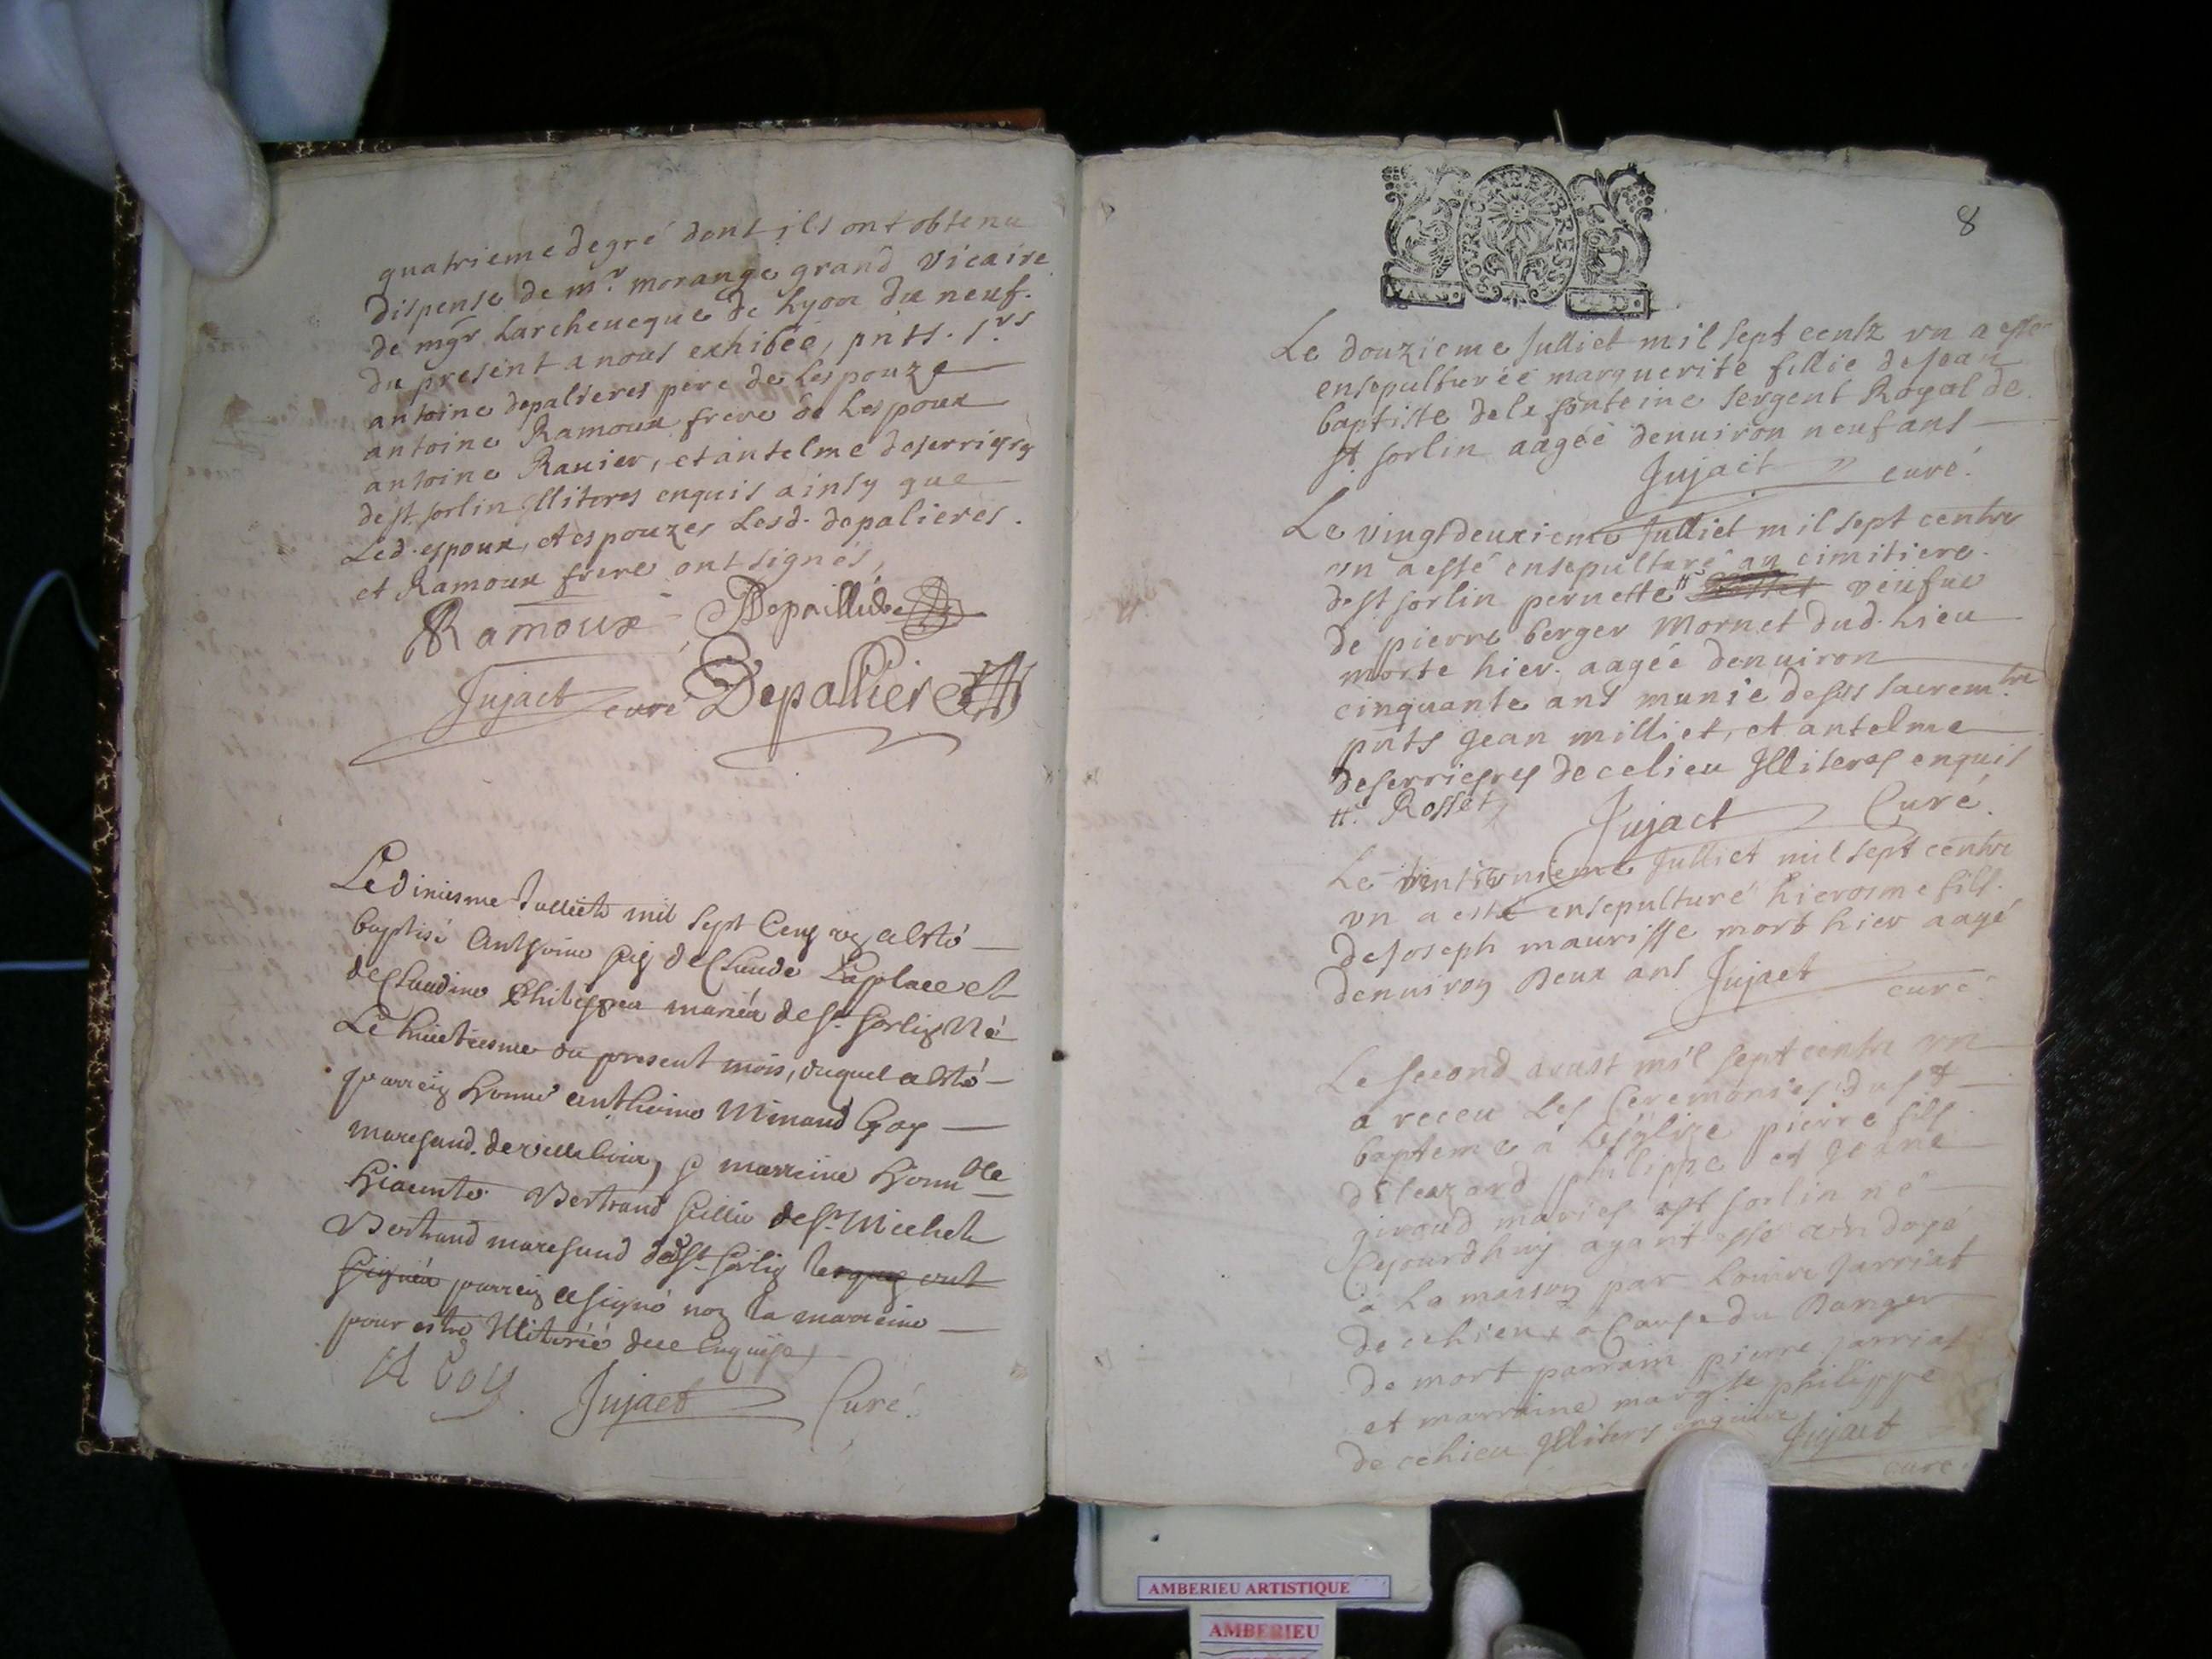 quatrieme degré dont ils ont obtenu
dispense de mr. morange grand vicaire
de mgr Larcheueque de Lyon du neuf.
du present a nous exhibée, pnts. srs
antoine depalieres pere de Lespouze
antoine Ramoux frere de Lespoux
antoine Rauier, et antelme deserrieres
de st. sorlin Illiteres enquis ainsy que
Led. espoux, et espouze, Lesd. depalieres.
et Ramoux frere ont signés,
Ramoux Depaillieres
Jujact curé Depalliere
Le diziesme Julliet mil sept Cens un a esté
baptisé Anthoine fils de Claude Laplace et
de Claudine Philippes mariés de st. sorlin Né
Le huictiesme du present mois, duquel a esté
parrein honne anthoine Minaud Goy
marchand de villebois, et marreine honnble
Hiacinte Bertrand fillie de sr. Michel
Bertrand marchand de st. sorlin lesquels ont
signés parrein a signé non la marreine
pour estre Illiterée de ce enquise,
A Goy. Jujact Curé.
8
Le douzieme Julliet mil sept centz vn a esté
ensepulturée marguerite fillie de Jean
baptiste dela fonteine sergent Royal de
st. sorlin aagéé denuiron neuf ans
Jujact curé.
Le vingtdeuxieme Julliet mil sept centz
vn a esté ensepulturé au cimitiere
de st sorlin pernette # veufue
de pierre berger Mornet dud. Lieu
morte hier. aagéé denuiron
cinquante ans munie de ses sacremts
pnts Jean milliet, et antelme
deserrieres de ce lieu Illiteres enquis
#. Rosset, Jujact Curé.
Le Julliet mil sept centz
vn a esté ensepulturé hierosme fils
de Joseph maurisse mort hier aagé
denuiron deux ans Jujact curé.
Le second aoust mil sept centz vn
a receu Les Ceremonies du st
bapteme a Leglize pierre fils
de Leazard philippe et Jeane
giroud mariés de st sorlin né
Cejourdhuy ayant esté ondoyé
a La maison par Louise Jarriat
de ce Lieu, a Cause du danger
de mort parrain pierre Jarriat
et marraine margte philippe
de ce Lieu Illiteres enquis Jujact
curé.
AMBERIEU ARTISTIQUE
AMBERIEU